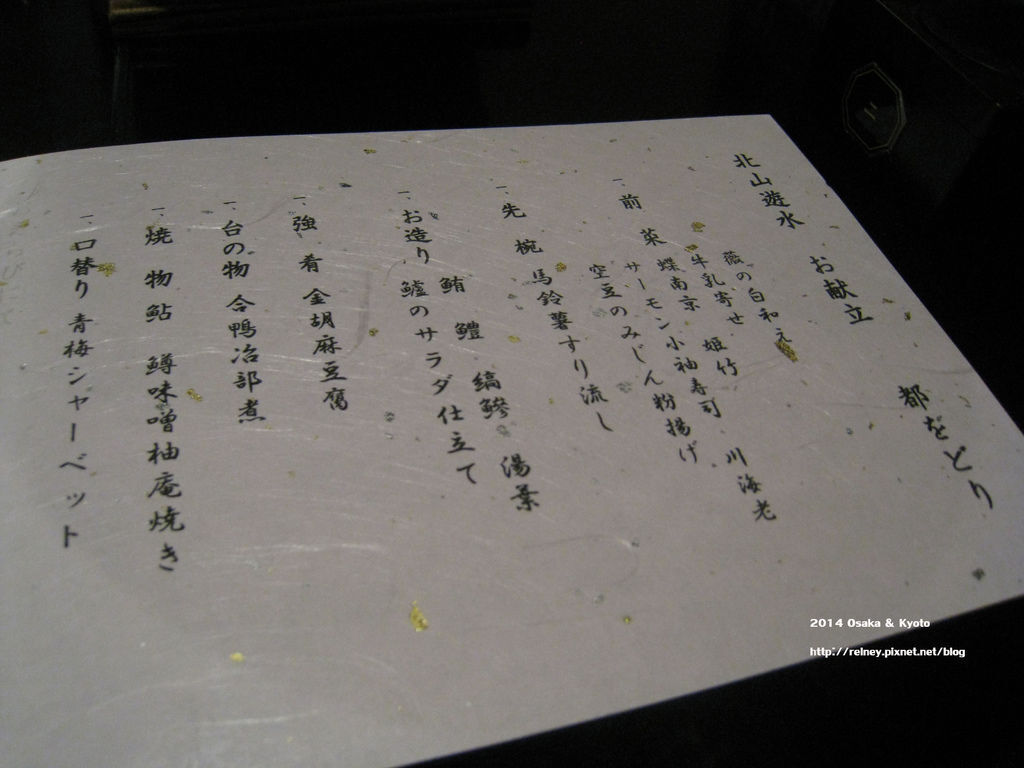 北山遊水 お献立 都をどり
薇の白和え
牛乳寄せ 姫竹 川海老
一、前 菜 蝶南京 小袖寿司
サーモン
空豆のみじん粉揚げ
一、先 椀 馬鈴薯すり流し
縞鯵 湯葉
鮪 鱧
一、お造り 鱸のサラダ仕立て
一、強 肴 金胡麻豆腐
一、台の物 合鴨冶部煮
一、焼 物 鮎 鱒味噌柚庵焼き
一、口替り 青梅シャーベット
2014 Osaka & Kyoto
http://relney.pixnet.net/blog